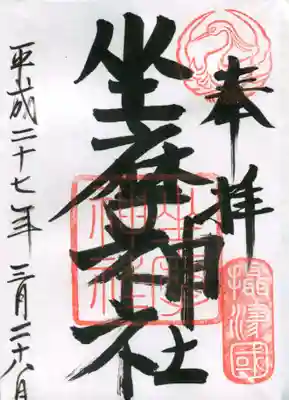 奉拝
摂津國
坐摩神社
坐摩
神社
平成二十七年 三月二十八日